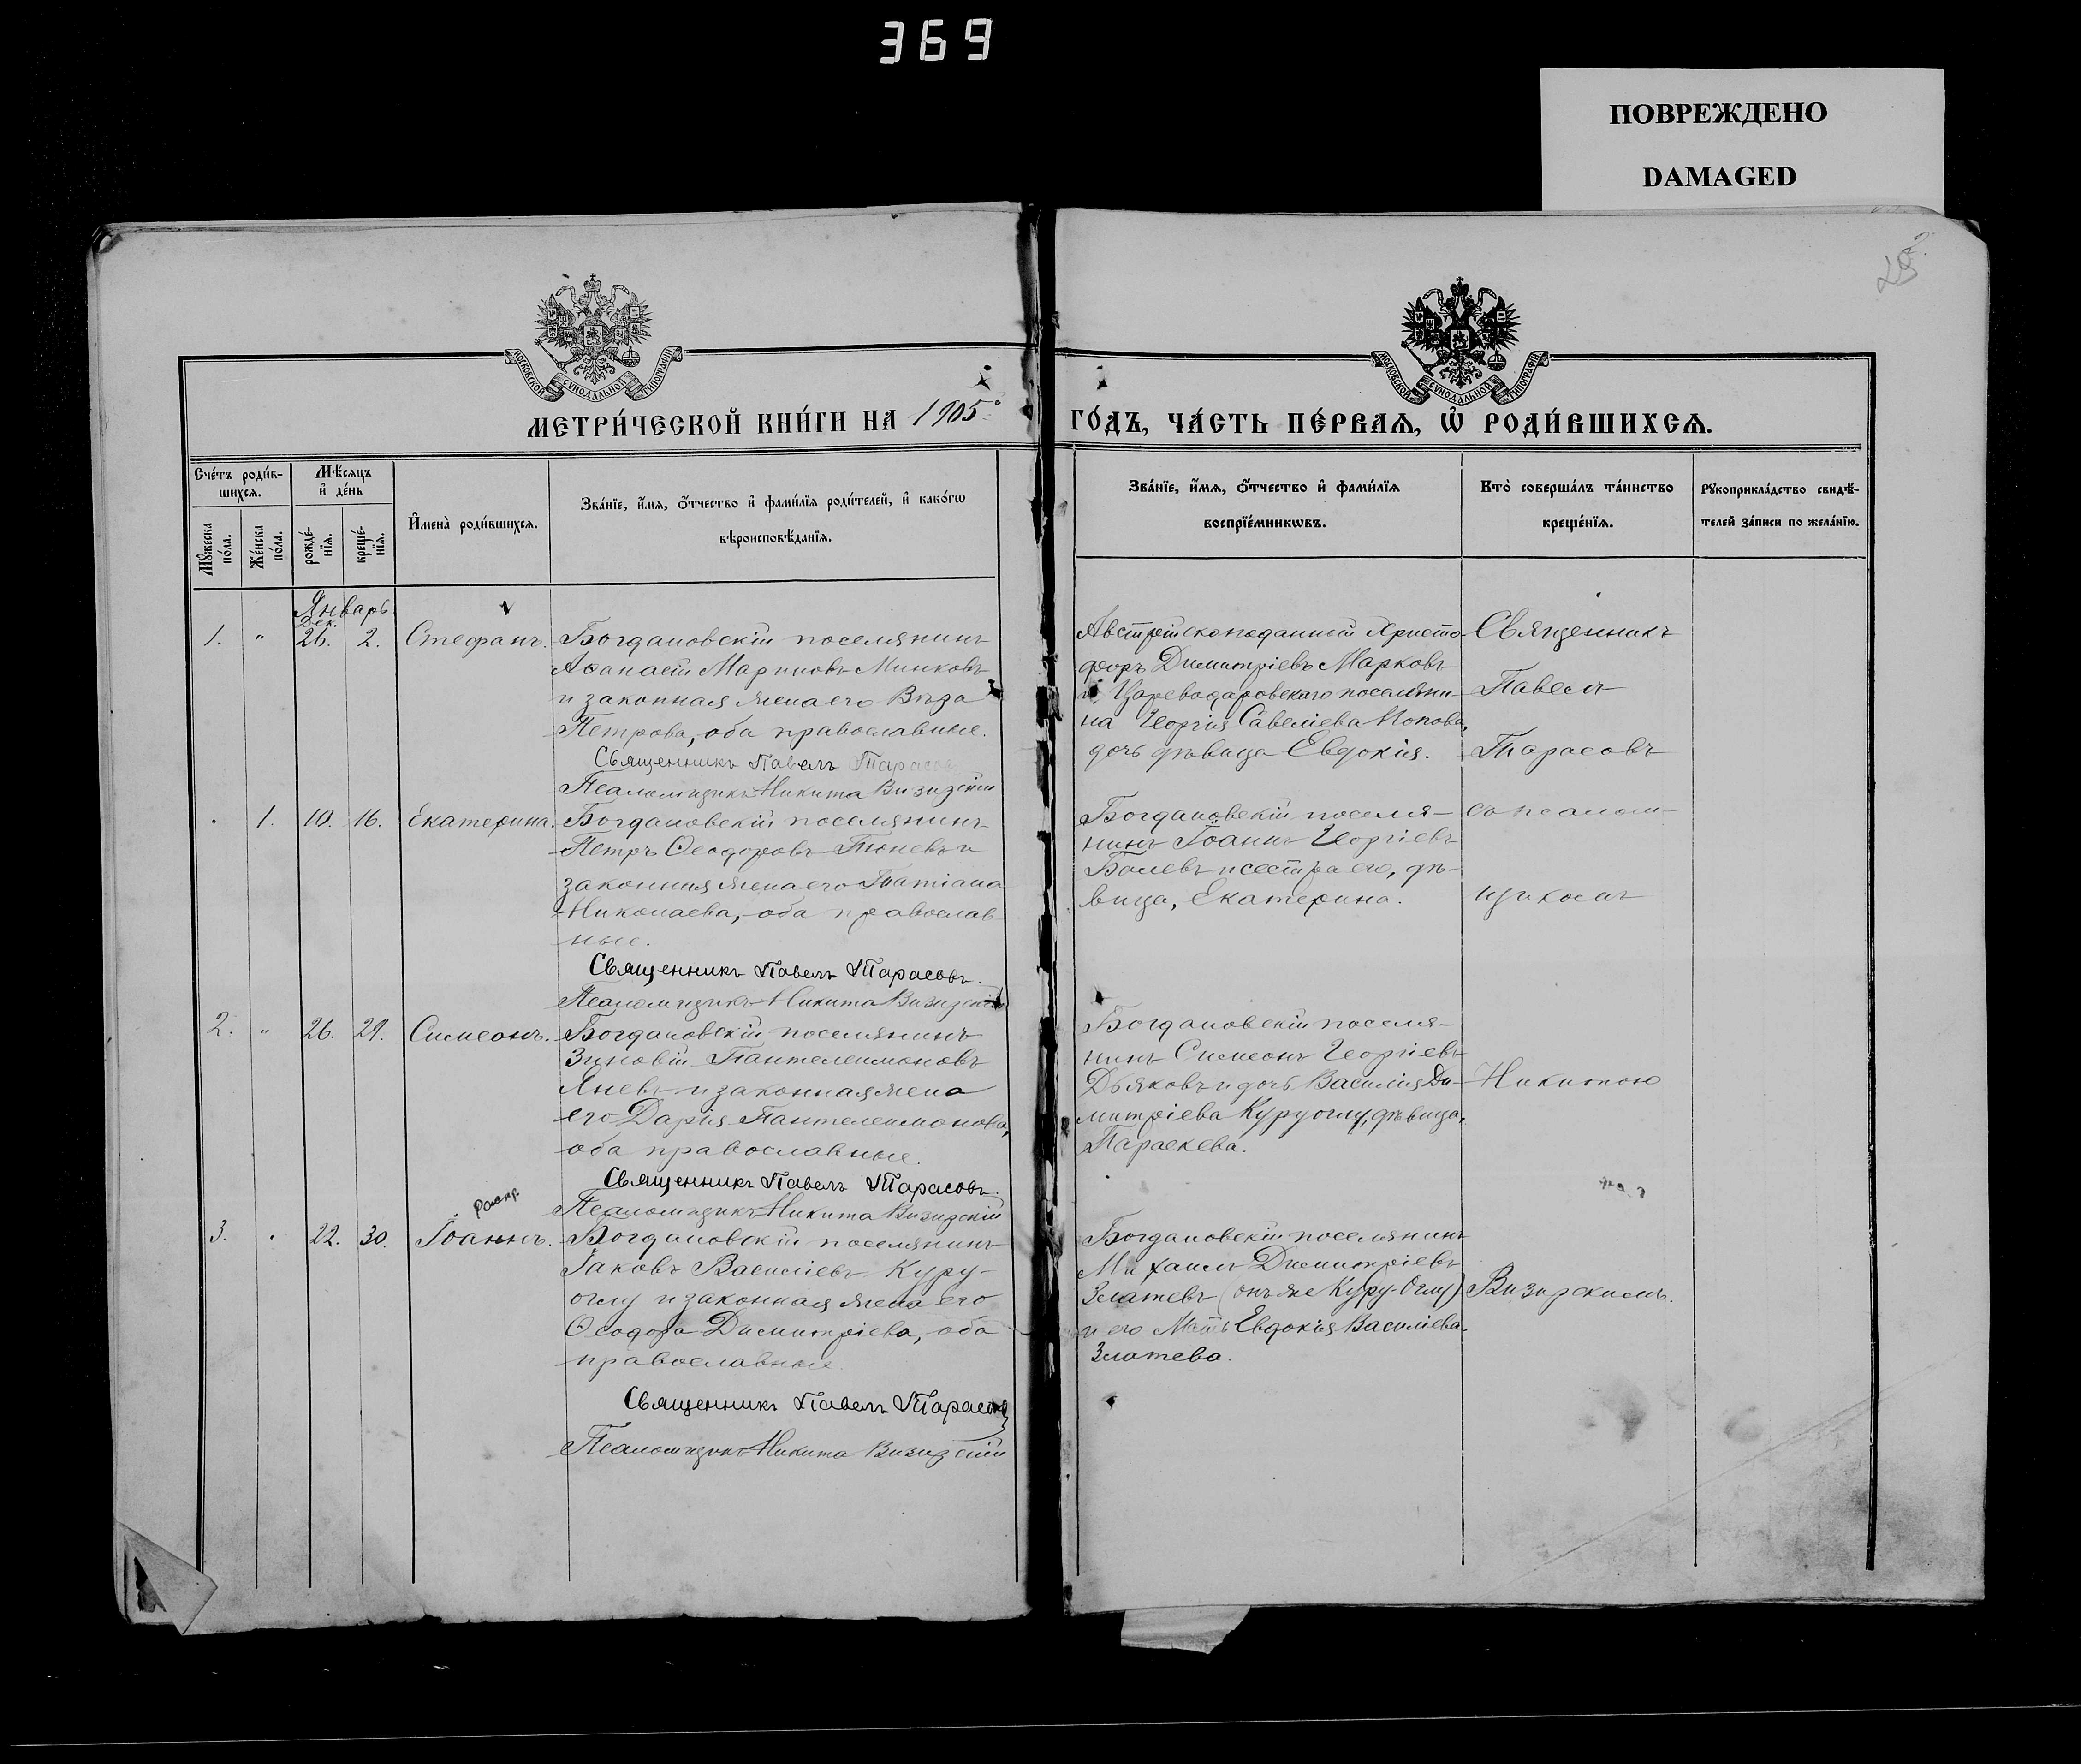 369
ПОВРЕЖДЕНО
DAMAGED
МОСКОВСКОЙ СѴНОДАЛЬНОЙ ТИПОГРАФІИ
МОСКОВСКОЙ СѴНОДАЛЬНОЙ ТИПОГРАФІИ
МЕТРИ́ЧЕСКОЙ КНИ́ГИ НА 1905 ГО́ДЪ, ЧА́СТЬ ПЕ́РВАѦ, Ѡ҆ РОДИ́ВШИХСѦ.
Сче́тъ роди́в-
шихсѧ.
Мꙋ́жеска по́ла.
Же́нска по́ла.
Мѣ́сѧцъ
и҆ де́нь
рожде́-
нїѧ.
креще́-
нїѧ.
И҆мена̀ роди́вшихсѧ.
Зва́нїе, и҆́мѧ, ѻ҆́тчество и҆ фами́лїѧ роди́телей, и҆ како́гѡ
вѣроисповѣ́данїѧ.
Зва́нїе, и҆́мѧ, ѻ҆́тчество и҆ фами́лїѧ
воспрїе́мникѡвъ.
Кто̀ соверша́лъ та́инство
креще́нїѧ.
Рꙋкоприкла́дство свидѣ́-
телей за́писи по жела́нїю.
Январь
Дек.
1. " 26. 2. Стефанъ.
Богдановскій поселянинъ
Аѳанасій Мариновъ Минковъ
и законная жена его Вѣра
Петрова, оба православные.
Священникъ Павелъ Тарасов
Псаломщикъ Никита Визирскій
Австрійскоподанный Христо-
форъ Димитріевъ Марковъ
и Цареводаровскаго поселяни-
на Георгія Савеліева Попова,
дочь дѣвица Евдокія.
Священникъ
Павелъ
Тарасовъ
1. 10. 16. Екатерина.
Богдановскій поселянинъ
Петръ Ѳеодоровъ Тюневъ и
законная жена его Татіана
Николаева, оба православ
ные.
Священникъ Павелъ Тарасовъ.
Псаломщикъ Никита Визирскій
Богдановскій поселя-
нинъ Іоаннъ Георгіевъ
Болевъ и сестра его, дѣ-
вица, Екатерина.
съ псалом-
щикомъ
2. " 26. 29. Симеонъ.
Богдановскій поселянинъ
Зиновій Пантелеимоновъ
Яневъ и законная жена
его Дарія Пантелеимонова,
оба православные.
Священникъ Павелъ Тарасовъ.
Псаломщикъ Никита Визирскій
Богдановскій поселя-
нинъ Симеонъ Георгіевъ
Дьяковъ и дочь Василія Ди-
митріева Куруоглу, дѣвица,
Параскева.
Никитою
3. 22. 30. Іоаннъ.
Богдановскій поселянинъ
Іаковъ Василіевъ Куру-
оглу и законная жена его
Ѳеодора Димитріева, оба
православные.
Священникъ Павелъ Тарасовъ
Псаломщикъ Никита Визирскій
Богдановскій поселянинъ
Михаилъ Димитріевъ
Златевъ (онъ же Куру-Оглу)
и его Мать Евдокія Василіева
Златева.
Визирскимъ.